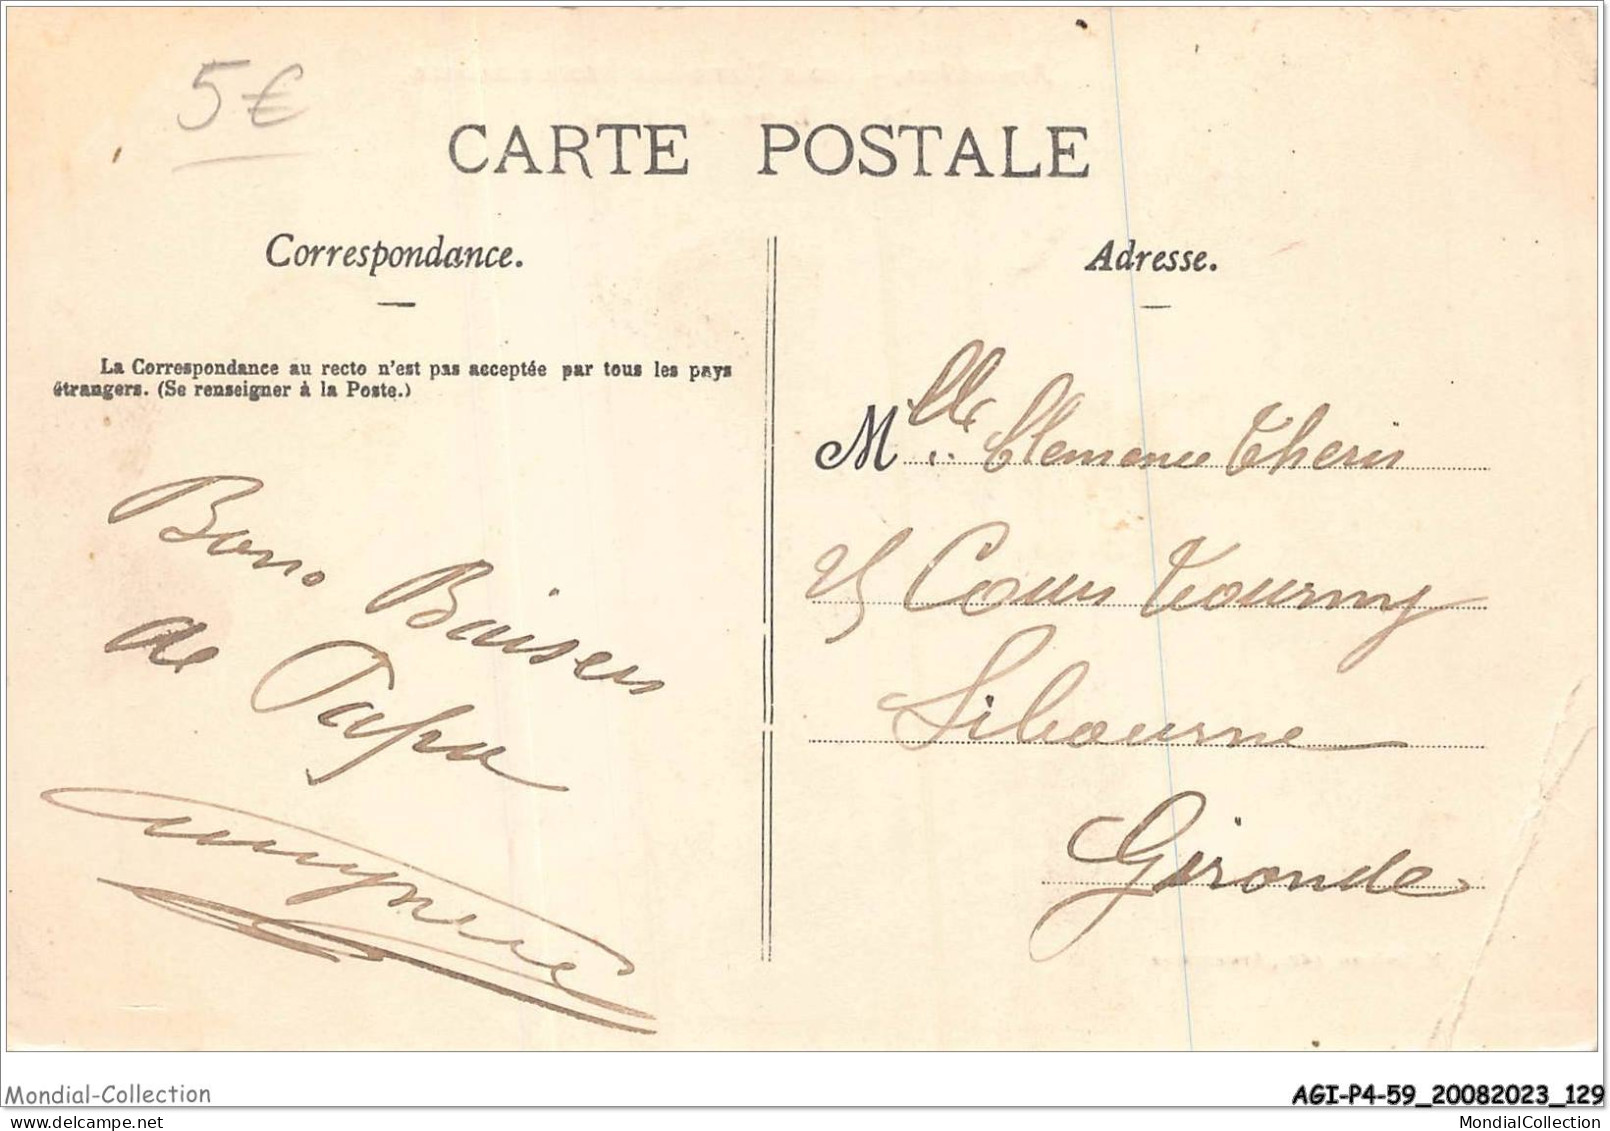 5€
CARTE POSTALE
Correspondance.
Adresse.
La Correspondance au recto n'est pas acceptée par tous les pays
étrangers. (Se renseigner à la Poste.)
Mlle Clemence
Bons Baisers
de Papa
25 Cours Tourny
Libourne
Gironde
Mondial-Collection
AGI-P4-59_20082023_129
www.delcampe.net
MondialCollection